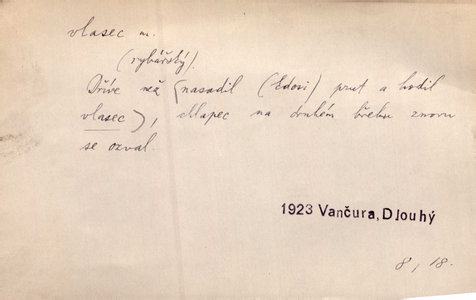 vlasec m.
(rybářský).
Dříve než (nasadil (Edovi) prut a hodil
vlasec), chlapec na druhém břehu znovu
se ozval.
1923 Vančura, Dlouhý
8, 18.